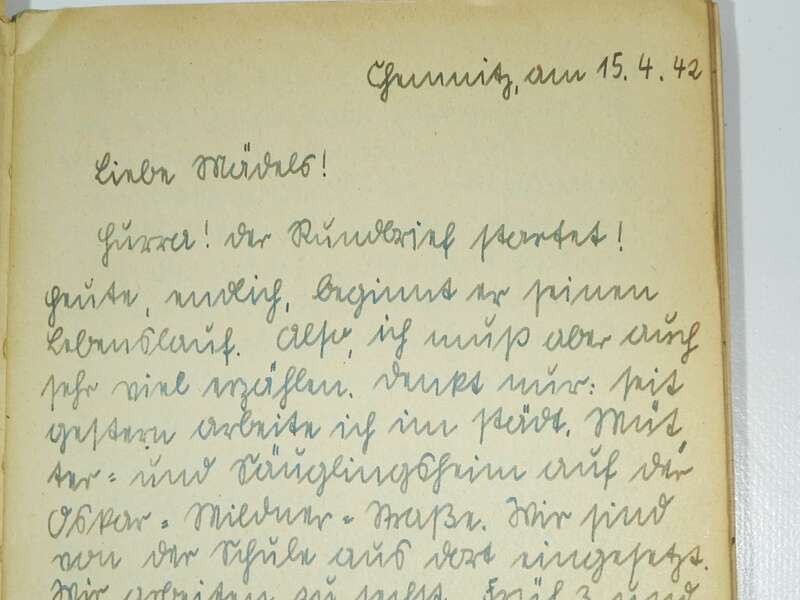 Chemnitz, am 15.4.42
Liebe Mädels!
Hurra! Der Rundbrief startet!
Heute, endlich, beginnt er seinen
Lebenslauf. Also, ich muß aber auch
sehr viel erzählen. Denkt nur: seit
gestern arbeite ich im städt. Müt-
ter- und Säuglingsheim auf der
Oskar-Mildner-Straße. Wir sind
von der Schule aus dort eingesetzt.
Wir arbeiten zu sechst. Früh 3 und